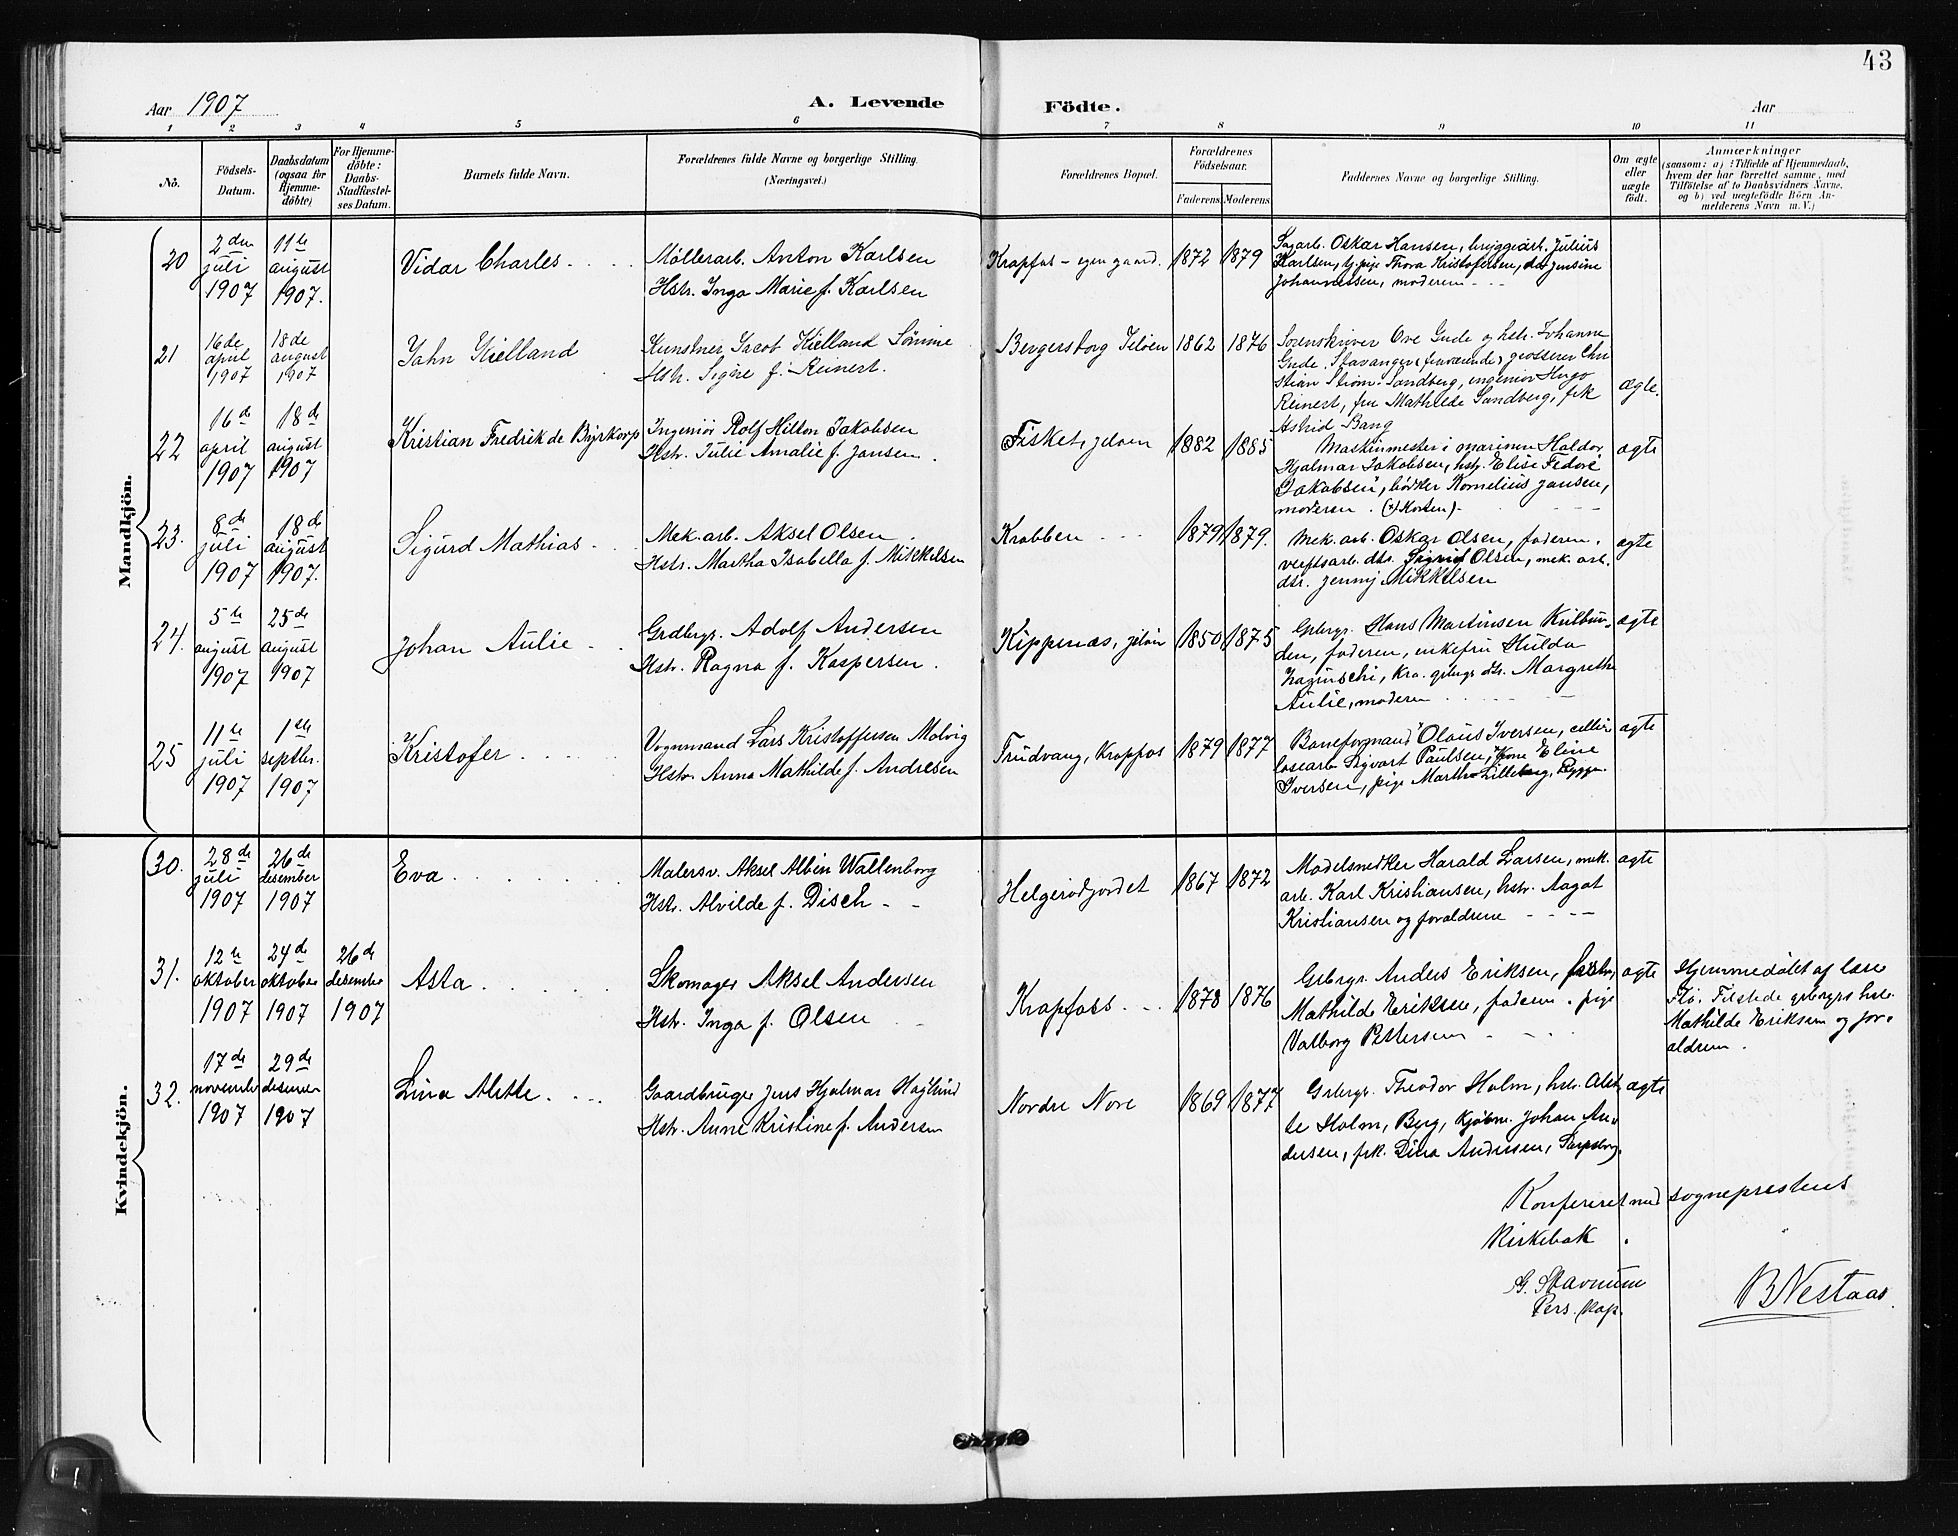 43
Aar 1907
A. Levende
Födte.
Aar
1 2 3 4 5 6 7 8 9 10 11
No.
Födsels-
Datum.
Daabsdatum
(ogsaa for
Hjemme-
döbte)
For Hjemme-
döbte:
Daabs-
Stadfæstel-
ses Datum.
Barnets fulde Navn.
Forældrenes fulde Navne og borgerlige Stilling.
(Næringsvei.)
Forældrenes Bopæl.
Forældrenes
Födselsaar.
Faderens Moderens
Faddernes Navne og borgerlige Stilling.
Om ægte
eller
uægte
födt.
Anmærkninger
(saasom: a) i Tilfælde af Hjemmedaab,
hvem der har forrettet samme, med
Tilföielse af to Daabsvidners Navne,
og b) ved uægtefödte Börn An-
melderens Navn m. V.)
Mandkjön.
20
2den
juli
1907
11te
august
1907.
Vidar Charles
Møllerarb. Anton Karlsen
Hstr. Inga Marie f. Karlsen
Krapfos - egen gaard.
1872 1879
Sagarb. Oskar Hansen, bryggeiarb. Julius
Karlsen, tj.pige Thora Kristofersen, do Jensine
Johannessen, moderen
21
16de
april
1907
18de
august
1907
Jahn Kielland
Kunstner Jacob Kielland Sømme
Hstr. Sigre f. Reinert.
Bergersborg Jeløen
1862 1876
Sorenskriver Ove Gude og hstr. Johanne
Gude, Stavanger (fraværende) grosserer Chri
stian Strøm Sandberg, ingeniør Hugo
Reinert, fru Mathilde Sandberg, frk
Astrid Bang
ægte.
22
16de
april
1907
18de
august
1907
Kristian Fredrik de Byrkorp
Ingeniør Rolf Hilton Jakobsen
Hstr. Julie Amalie f. Jansen.
Fiskets, jeløen
1882 1885
Maskinmester i marinen Haldor
Hjalmar Jakobsen, hstr. Elise Fedore
Jakobsen, bødker Kornelius Jansen,
moderen. (Horten)
ægte
23.
8de
juli
1907
18de
august
1907.
Sigurd Mathias
Mek. arb. Aksel Olsen
Hstr. Martha Isabella f. Mikkelsen
Krabben
1879 1879.
Mek. arb. Oskar Olsen, faderen,
verftsarb. dtr. Sigrid Olsen, mek. arb.
dtr. Jenny Mikkelsen
ægte
24.
5te
august
1907
25de
august
1907
Johan Aulie
Grdbrgr. Adolf Andersen
Hstr. Ragna f. Kaspersen.
Kippenæs, jeløen
1850 1875
Gbrgr. Hans Martinsen Kulbun-
den, faderen, enkefru Hulda
Kra. grbrgr dtr. Margrethe
Aulie, moderen
ægte
25
11te
juli
1907
1ste
septbr.
1907
Kristofer
Vognmand Lars Kristoffersen Molvig
Hstr. Anna Mathilde f. Andresen
Trudvang, Krapfos
1879 1877
Baneformand Olaus Iversen, cellu-
losearb Sigvart Paulsen, Kone Eline
Iversen, pige Martha Lilleberg, Rygge.
ægte
Kvindekjön.
30.
28de
juli
1907
26de
desember
1907
Eva
Malersv. Aksel Albin Wallenborg
Hstr. Alvilde f. Disch
Helgerødjordet
1867 1872
Modelsnedker Harald Larsen, mek.
arb. Karl Kristiansen, hstr. Aagot
Kristiansen og forældrene
ægte
31.
12te
oktober
1907
24de
oktober
1907
26de
desember
1907
Asta
Skomager Aksel Andersen
Hstr. Inga f. Olsen
Krapfoss
1878 1876
Grbrgr. Anders Eriksen,
Mathilde Eriksen, faderen, pige
Valborg Pettersen
ægte
Hjemmedøbt af læge
Flø. Tilstede grbrgrs hstr.
Mathilde Eriksen og for-
ældrene.
32.
17de
november
1907
29de
desember
1907
Lina Alette
Gaardbruger Jens Hjalmar Høglund
Hstr. Anne Kristine f. Andersen
Nordre Nore
1869 1877
Grbrgr. Theodor Holm, hstr. Alet-
te Holm, Berg, kjøbm. Johan An-
dersen, frk. Lina Andersen, Sarpsborg.
ægte
Konfereret med sogneprestens
Kirkebok.
G. Stavnum
Pers. kap.
B Nestaas